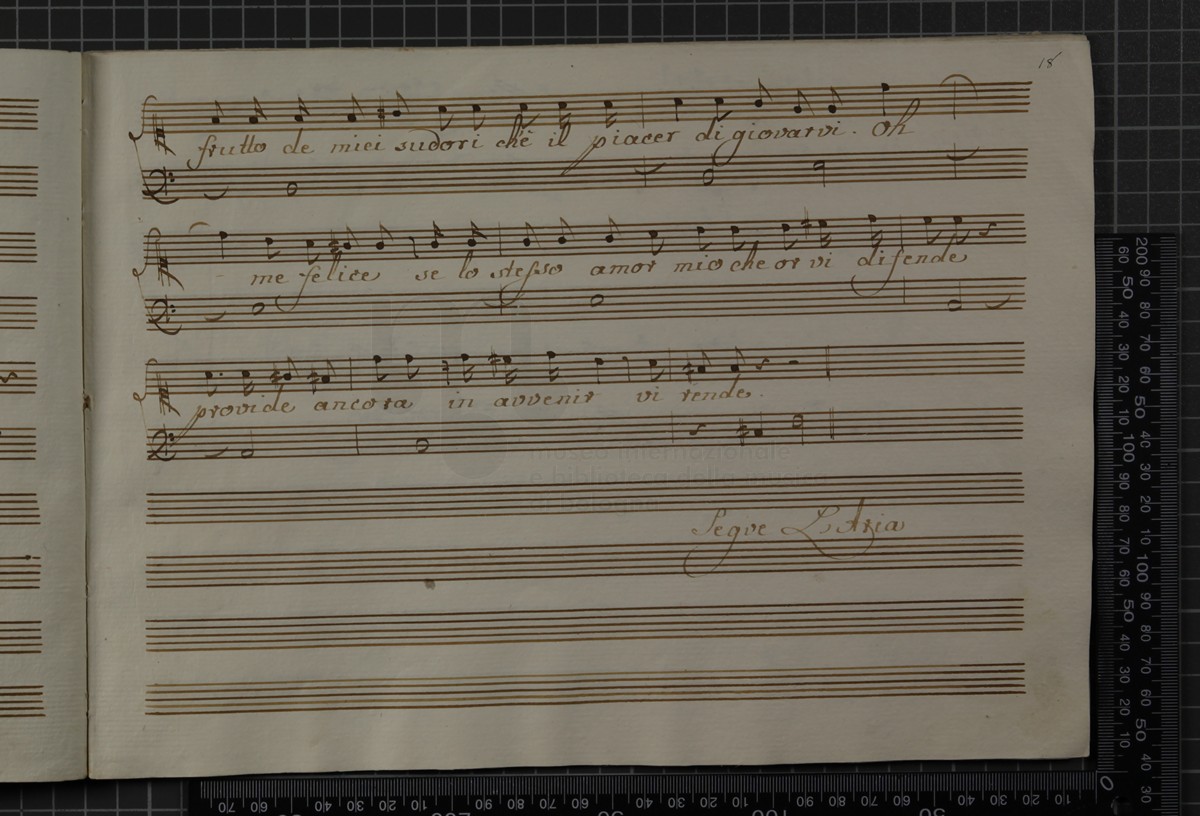 18
frutto de miei sudori ch'è il piacer di giovarvi. Oh
me felice se lo stesso amor mio che or vi difende
provide ancora in avvenir vi rende.
museo internazionale
e biblioteca della musica
di bologna
Segue L'Aria